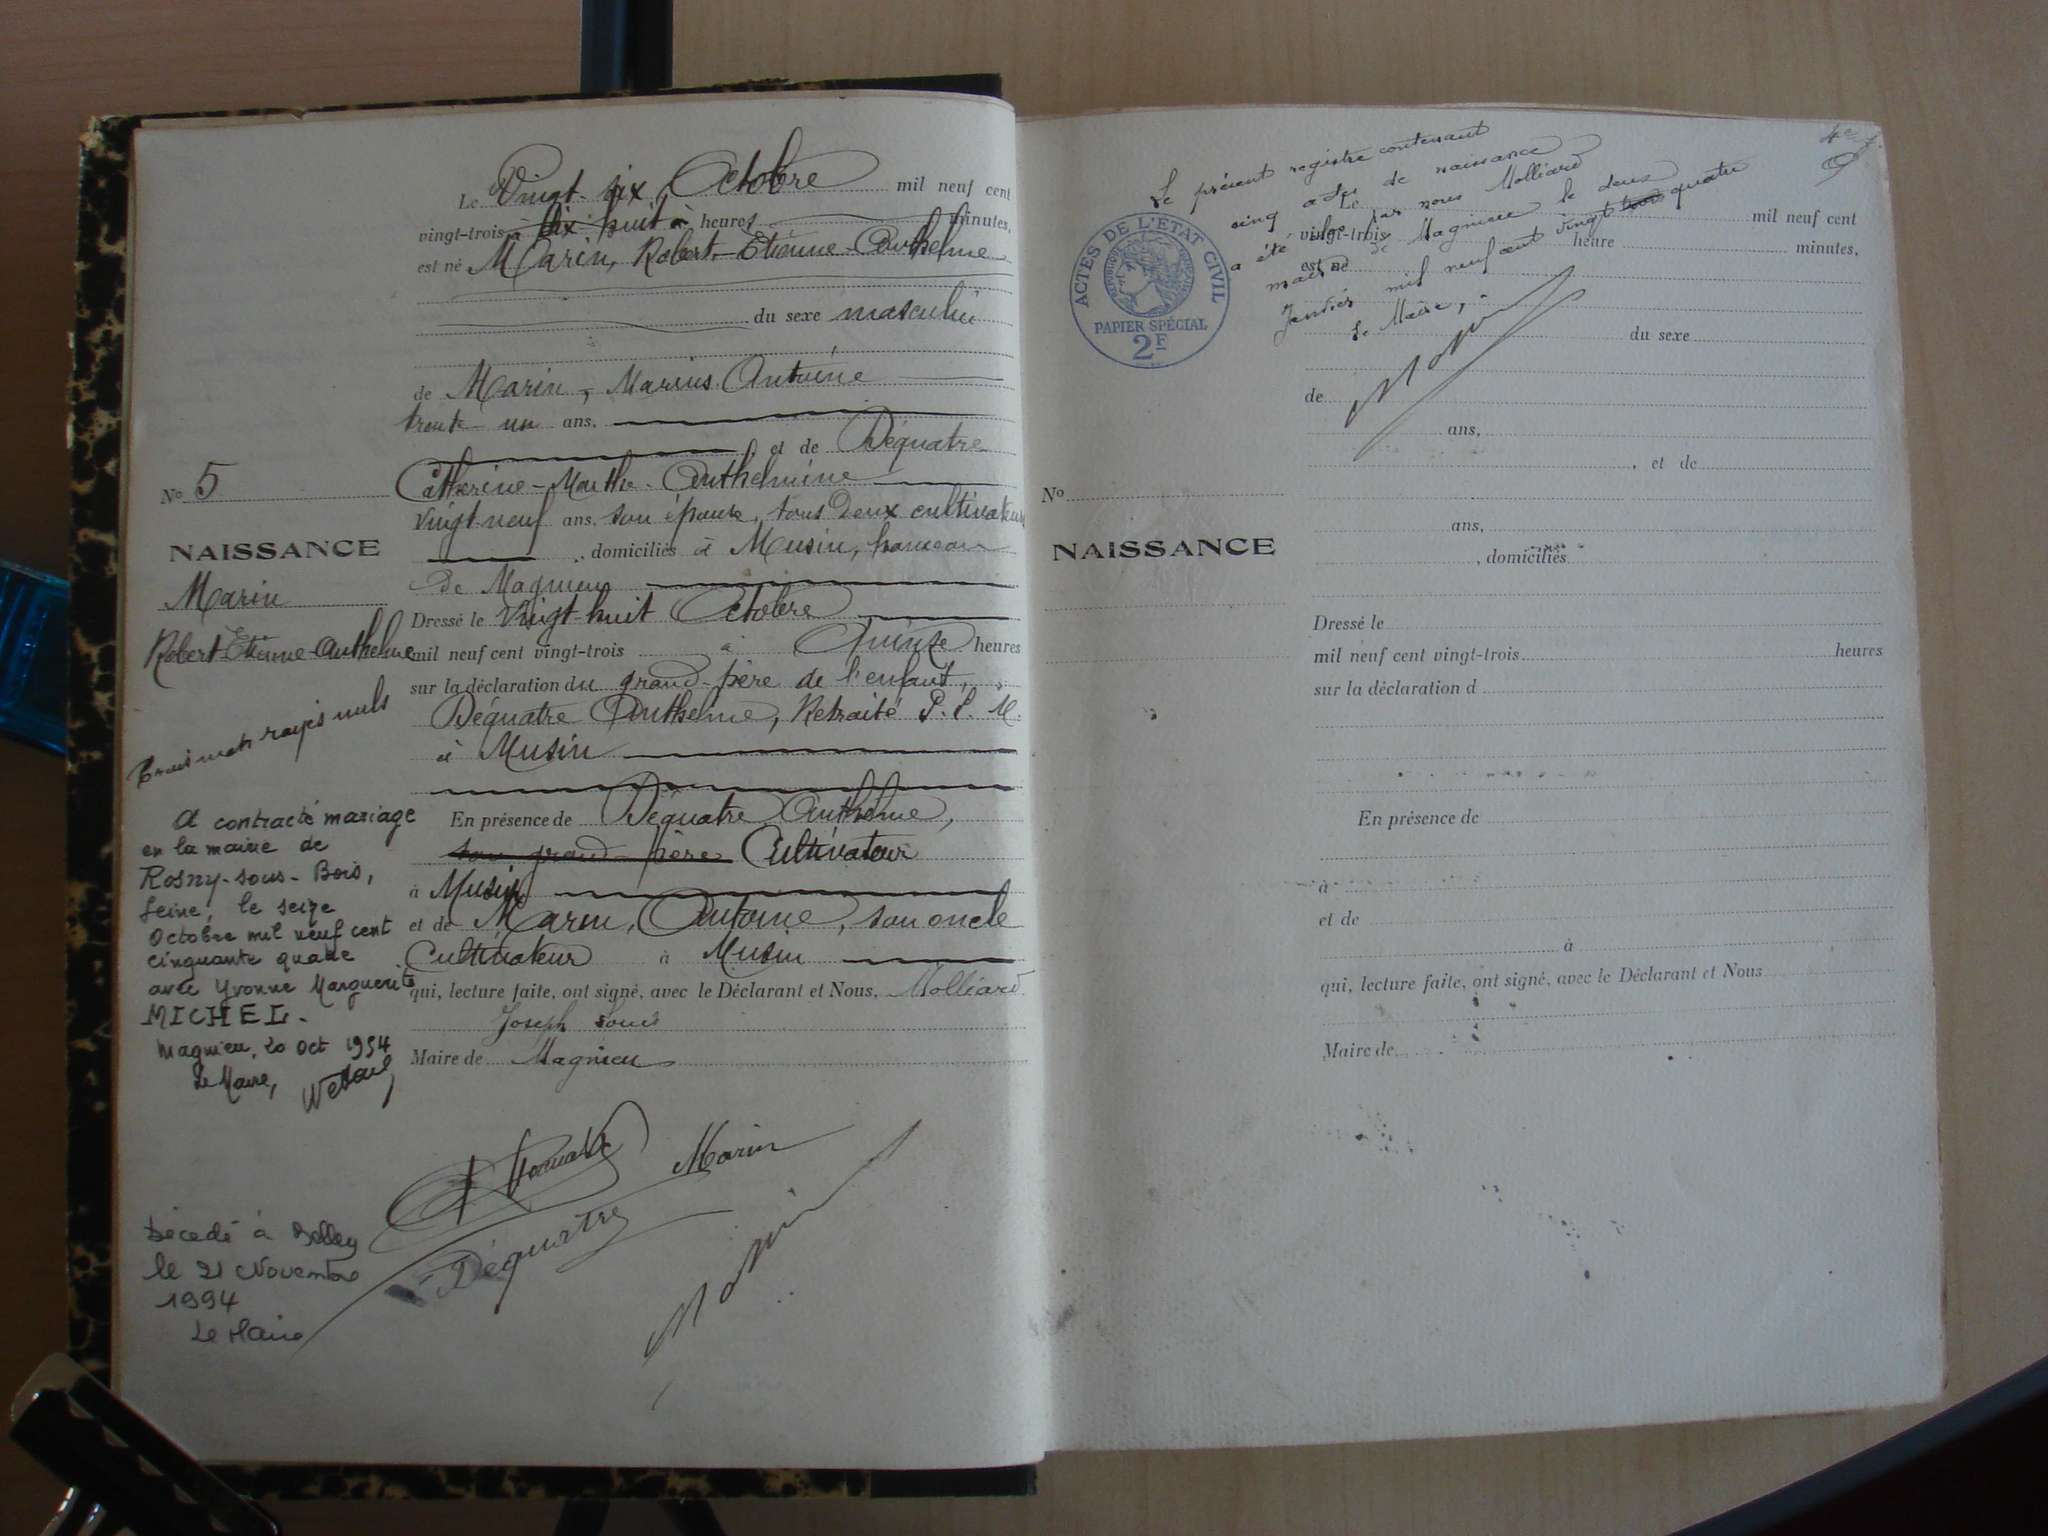 Le Vingt-six Octobre mil neuf cent
vingt-trois à dix-huit à heures minutes,
est né Marin, Robert-Etienne-Anthelme
du sexe masculin
de Marin, Marius Antoine
trente-un ans,
, et de Déquatre
Catherine-Marthe-Anthelmine
vingt-neuf ans, son épouse, tous deux cultivateurs
, domiciliés à Musin, hameau
de Magnieu
Dressé le vingt-huit Octobre
mil neuf cent vingt-trois à Quinze heures
sur la déclaration du grand-père de l'enfant,
Déquatre Anthelme, Retraité P. L. M.
à Musin
En présence de Déquatre Anthelme,
son grand-père Cultivateur
à Musin
et de Marin, Antoine, son oncle
Cultivateur à Musin
qui, lecture faite, ont signé, avec le Déclarant et Nous, Molliard
Joseph Louis
Maire de Magnieu
No 5
NAISSANCE
Marin
Robert-Etienne-Anthelme
Trois mots rayés nuls
A contracté mariage
en la mairie de
Rosny-sous-Bois,
Seine, le seize
Octobre mil neuf cent
cinquante quatre
avec Yvonne Marguerite
MICHEL.
Magnieu, 20 Oct 1954
Le Maire,
Décédé à Belley
le 21 Novembre
1994
Le Maire
Marin
Déquatre
4e
Le présent registre contenant
cinq actes de naissance
a été clos par nous Molliard
maire de Magnieu le deux
Janvier mil neuf cent vingt trois quatre
Le Maire,
ACTES DE L'ETAT CIVIL
RÉPUBLIQUE FRANÇAISE
PAPIER SPÉCIAL
2F
Le mil neuf cent
vingt-trois à heure minutes,
est né
du sexe
de
ans,
, et de
No
ans,
NAISSANCE
, domiciliés
Dressé le
mil neuf cent vingt-trois heures
sur la déclaration d
En présence de
à
et de
à
qui, lecture faite, ont signé, avec le Déclarant et Nous
Maire de